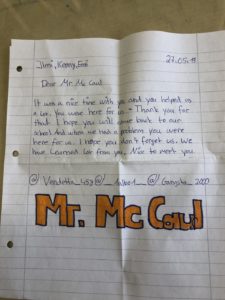 27.05.18
Dear Mr. Mc Caul
It was a nice time with you and you helped us
a lot. You were here for us. Thank you for
that. I hope you will come back to our
school. And when we had a problem you were
here for us. I hope you don't forget us. We
have learned lot from you. Nice to meet you
Mr. Mc Caul